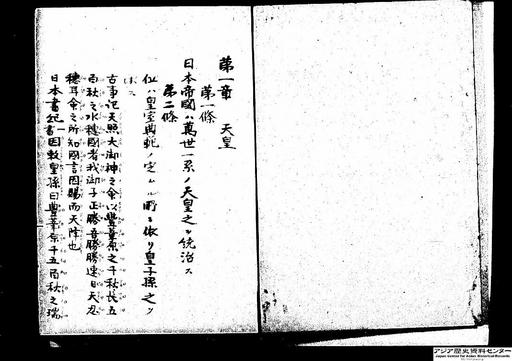 第一章　天皇
第一條
日本帝國ハ萬世一系ノ天皇之ヲ統治ス
第二條
位ハ皇室典範ノ定ムル所ニ依リ皇子孫之ヲ
古事記天照大御神之命以豐葦原之千秋長五
百秋之水穗國者我御子正勝吾勝勝速日天忍
穗耳命之所知國言因賜而天降也
日本書紀一書因敕皇孫曰豐葦原千五百秋之瑞
アジア歴史資料センター
Japan Center for Asian Historical Records